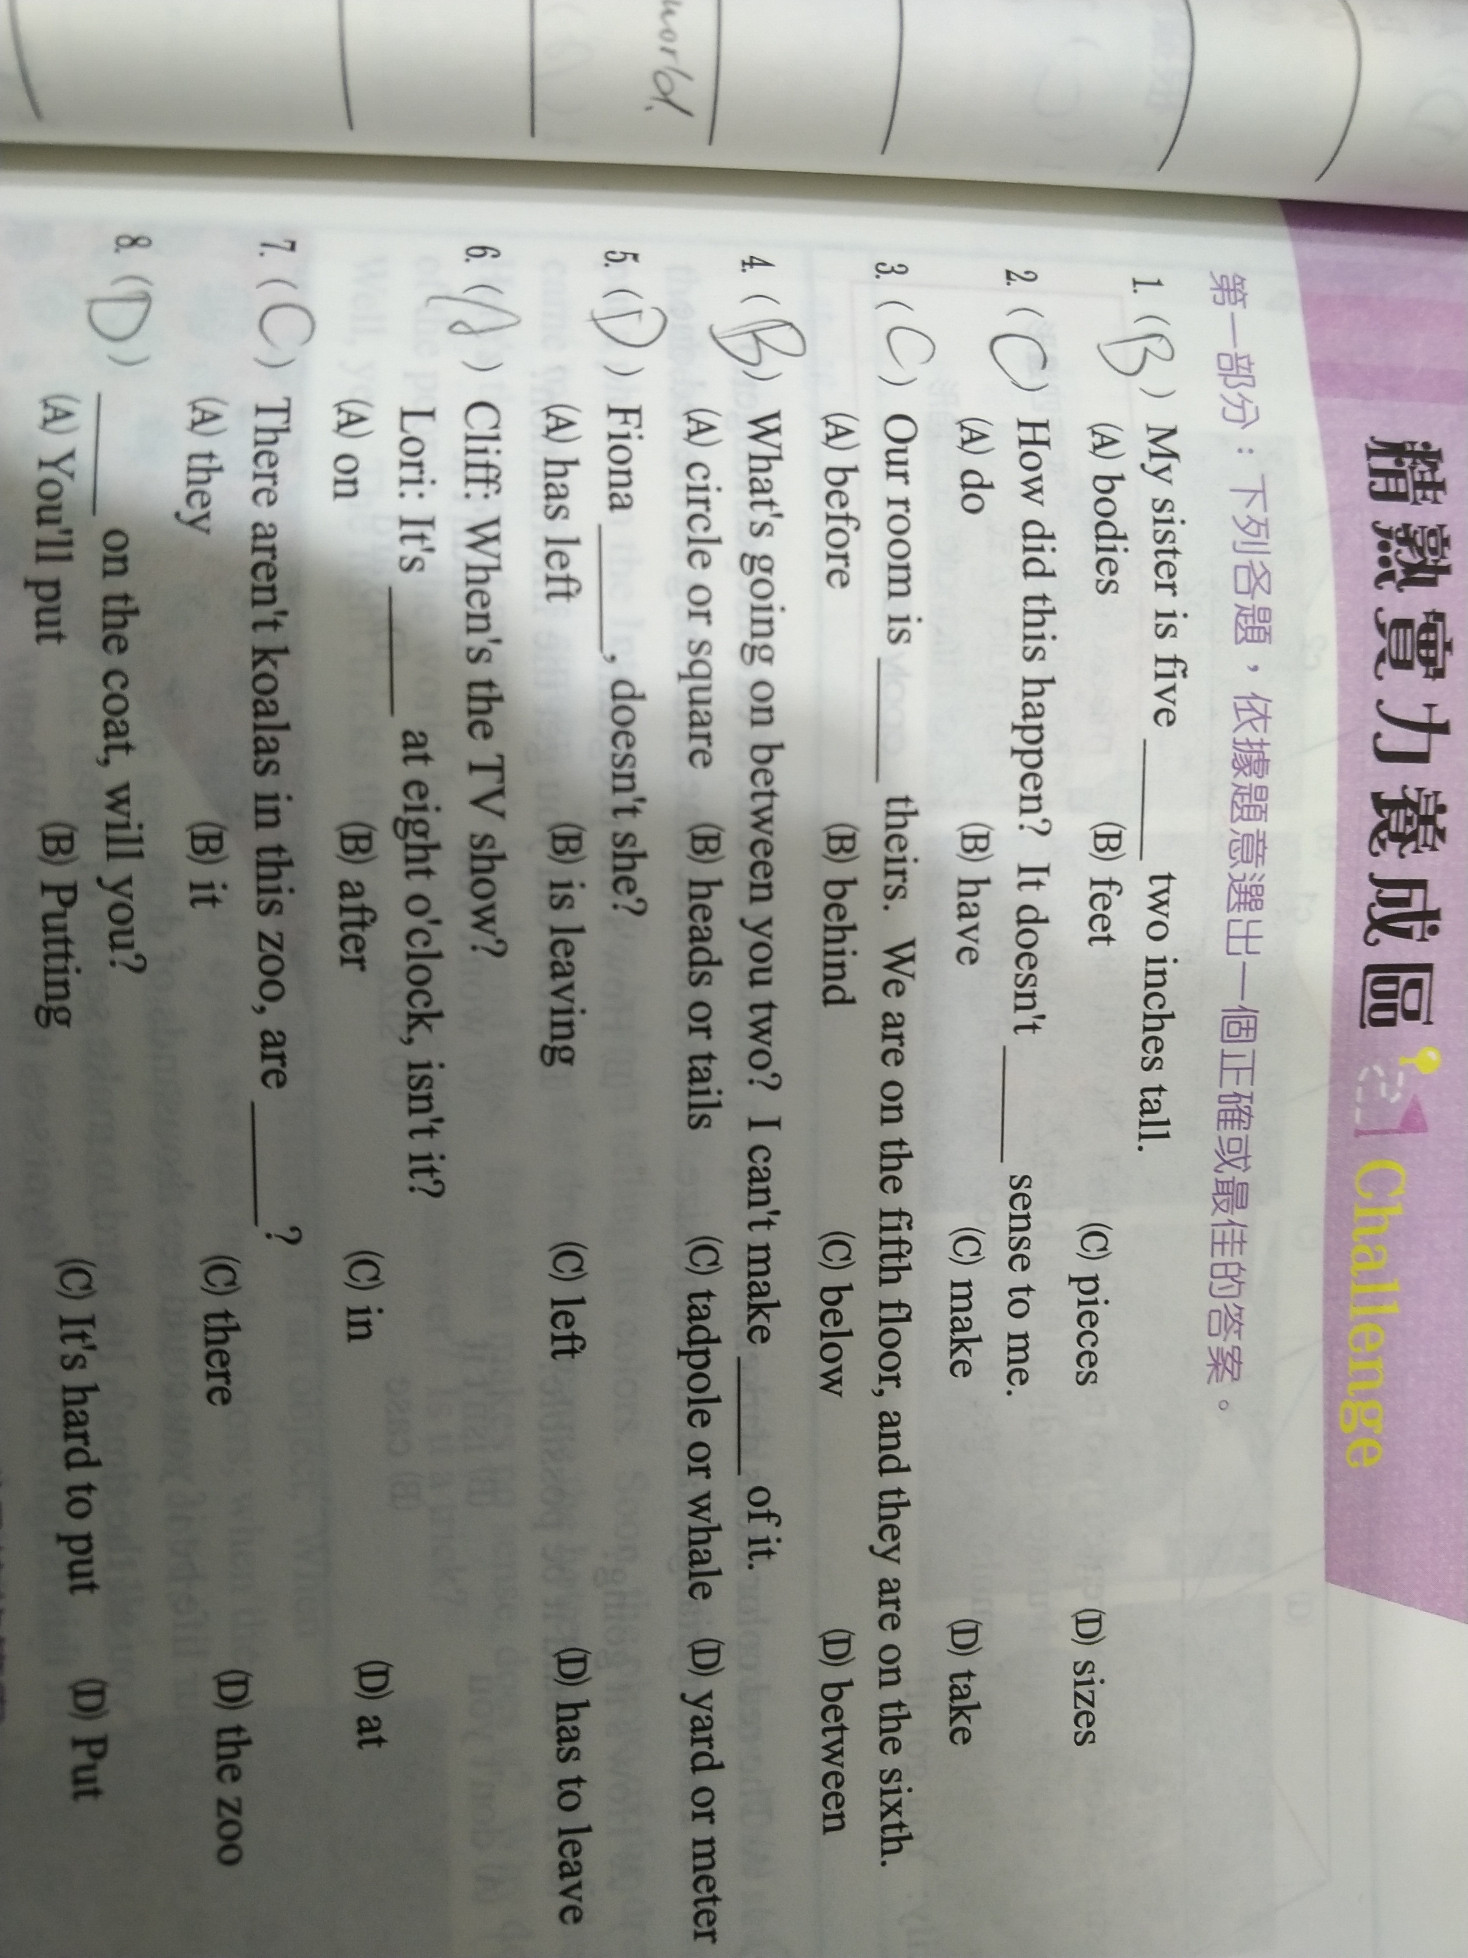 world.
精熟實力養成區 Challenge
第一部分：下列各題，依據題意選出一個正確或最佳的答案。
1. ( B ) My sister is five ______ two inches tall.
(A) bodies (B) feet (C) pieces (D) sizes
2. ( C ) How did this happen? It doesn't ______ sense to me.
(A) do (B) have (C) make (D) take
3. ( C ) Our room is ______ theirs. We are on the fifth floor, and they are on the sixth.
(A) before (B) behind (C) below (D) between
4. ( B ) What's going on between you two? I can't make ______ of it.
(A) circle or square (B) heads or tails (C) tadpole or whale (D) yard or meter
5. ( D ) Fiona ______, doesn't she?
(A) has left (B) is leaving (C) left (D) has to leave
6. ( A ) Cliff: When's the TV show?
Lori: It's ______ at eight o'clock, isn't it?
(A) on (B) after (C) in (D) at
7. ( C ) There aren't koalas in this zoo, are ______?
(A) they (B) it (C) there (D) the zoo
8. ( D ) ______ on the coat, will you?
(A) You'll put (B) Putting (C) It's hard to put (D) Put